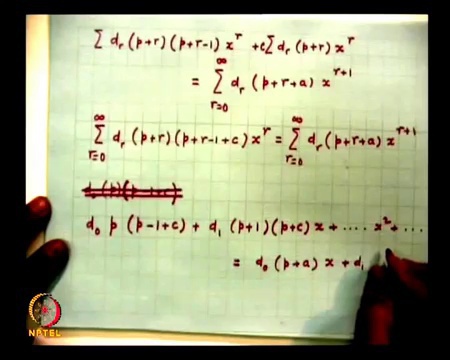 Σ d_r (p+r)(p+r-1) x^r + c Σ d_r (p+r) x^r
= Σ_{r=0}^{∞} d_r (p+r+a) x^{r+1}
Σ_{r=0}^{∞} d_r (p+r)(p+r-1+c) x^r = Σ_{r=0}^{∞} d_r (p+r+a) x^{r+1}
d_0 p (p-1+c) + d_1 (p+1)(p+c) x + .... x^2 + ....
= d_0 (p+a) x + d_1
NPTEL